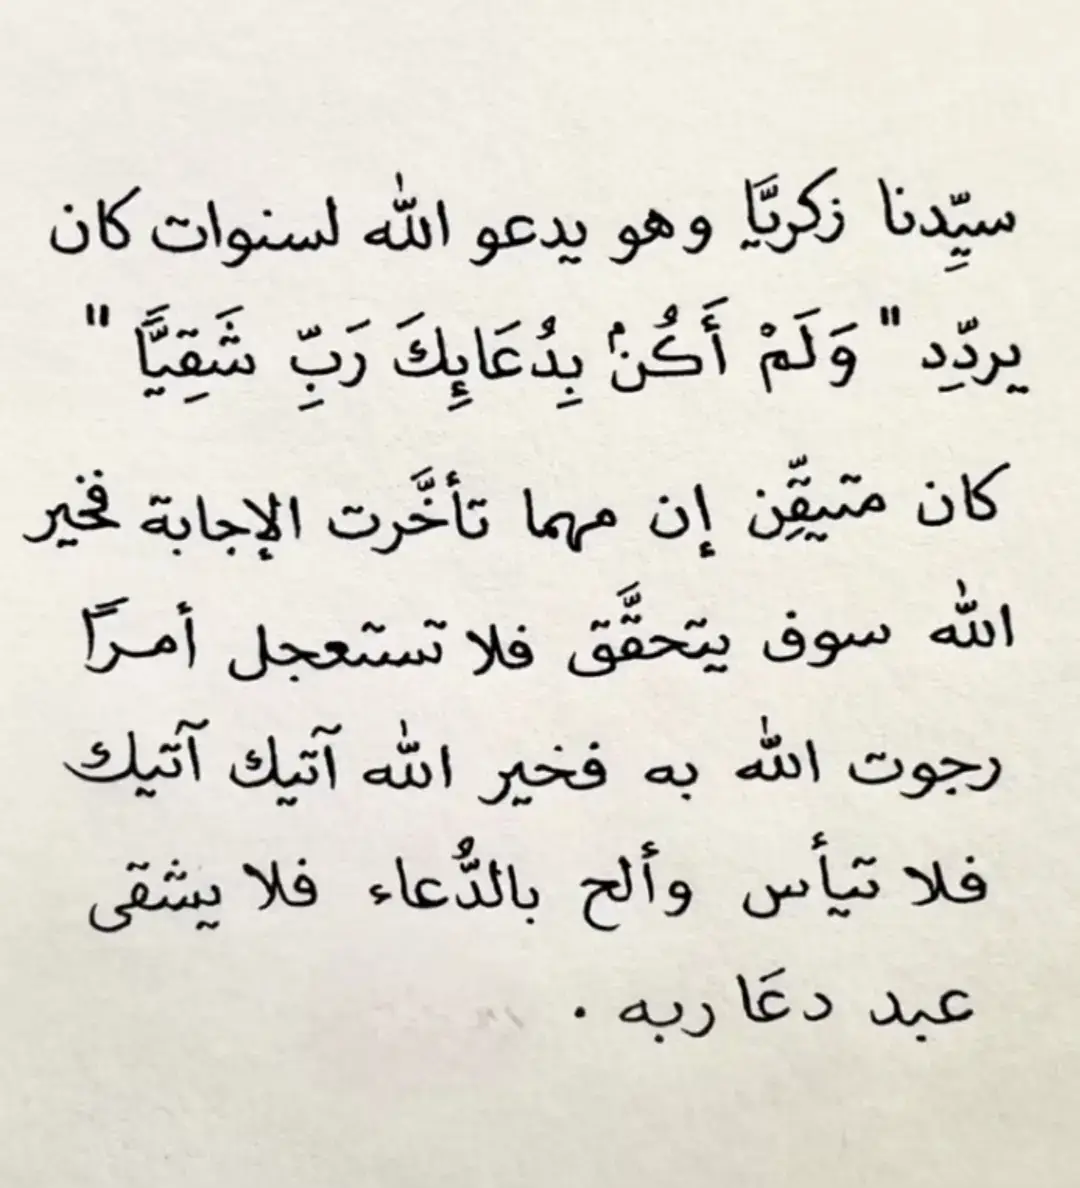 سيِّدنا زكريَّا وهو يدعو الله لسنوات كان
يردِّد " وَلَمْ أَكُنْ بِدُعَايِكَ رَبِّ شَقِيًّا "
كان متيقِّن إن مهما تأخَّرت الإجابة فخير
الله سوف يتحقَّق فلا تستعجل أمراً
رجوت الله به فخير الله آتيك آتيك
فلا تيأس وألح بالدُّعاء فلا يشقى
عبد دعَا ربه .